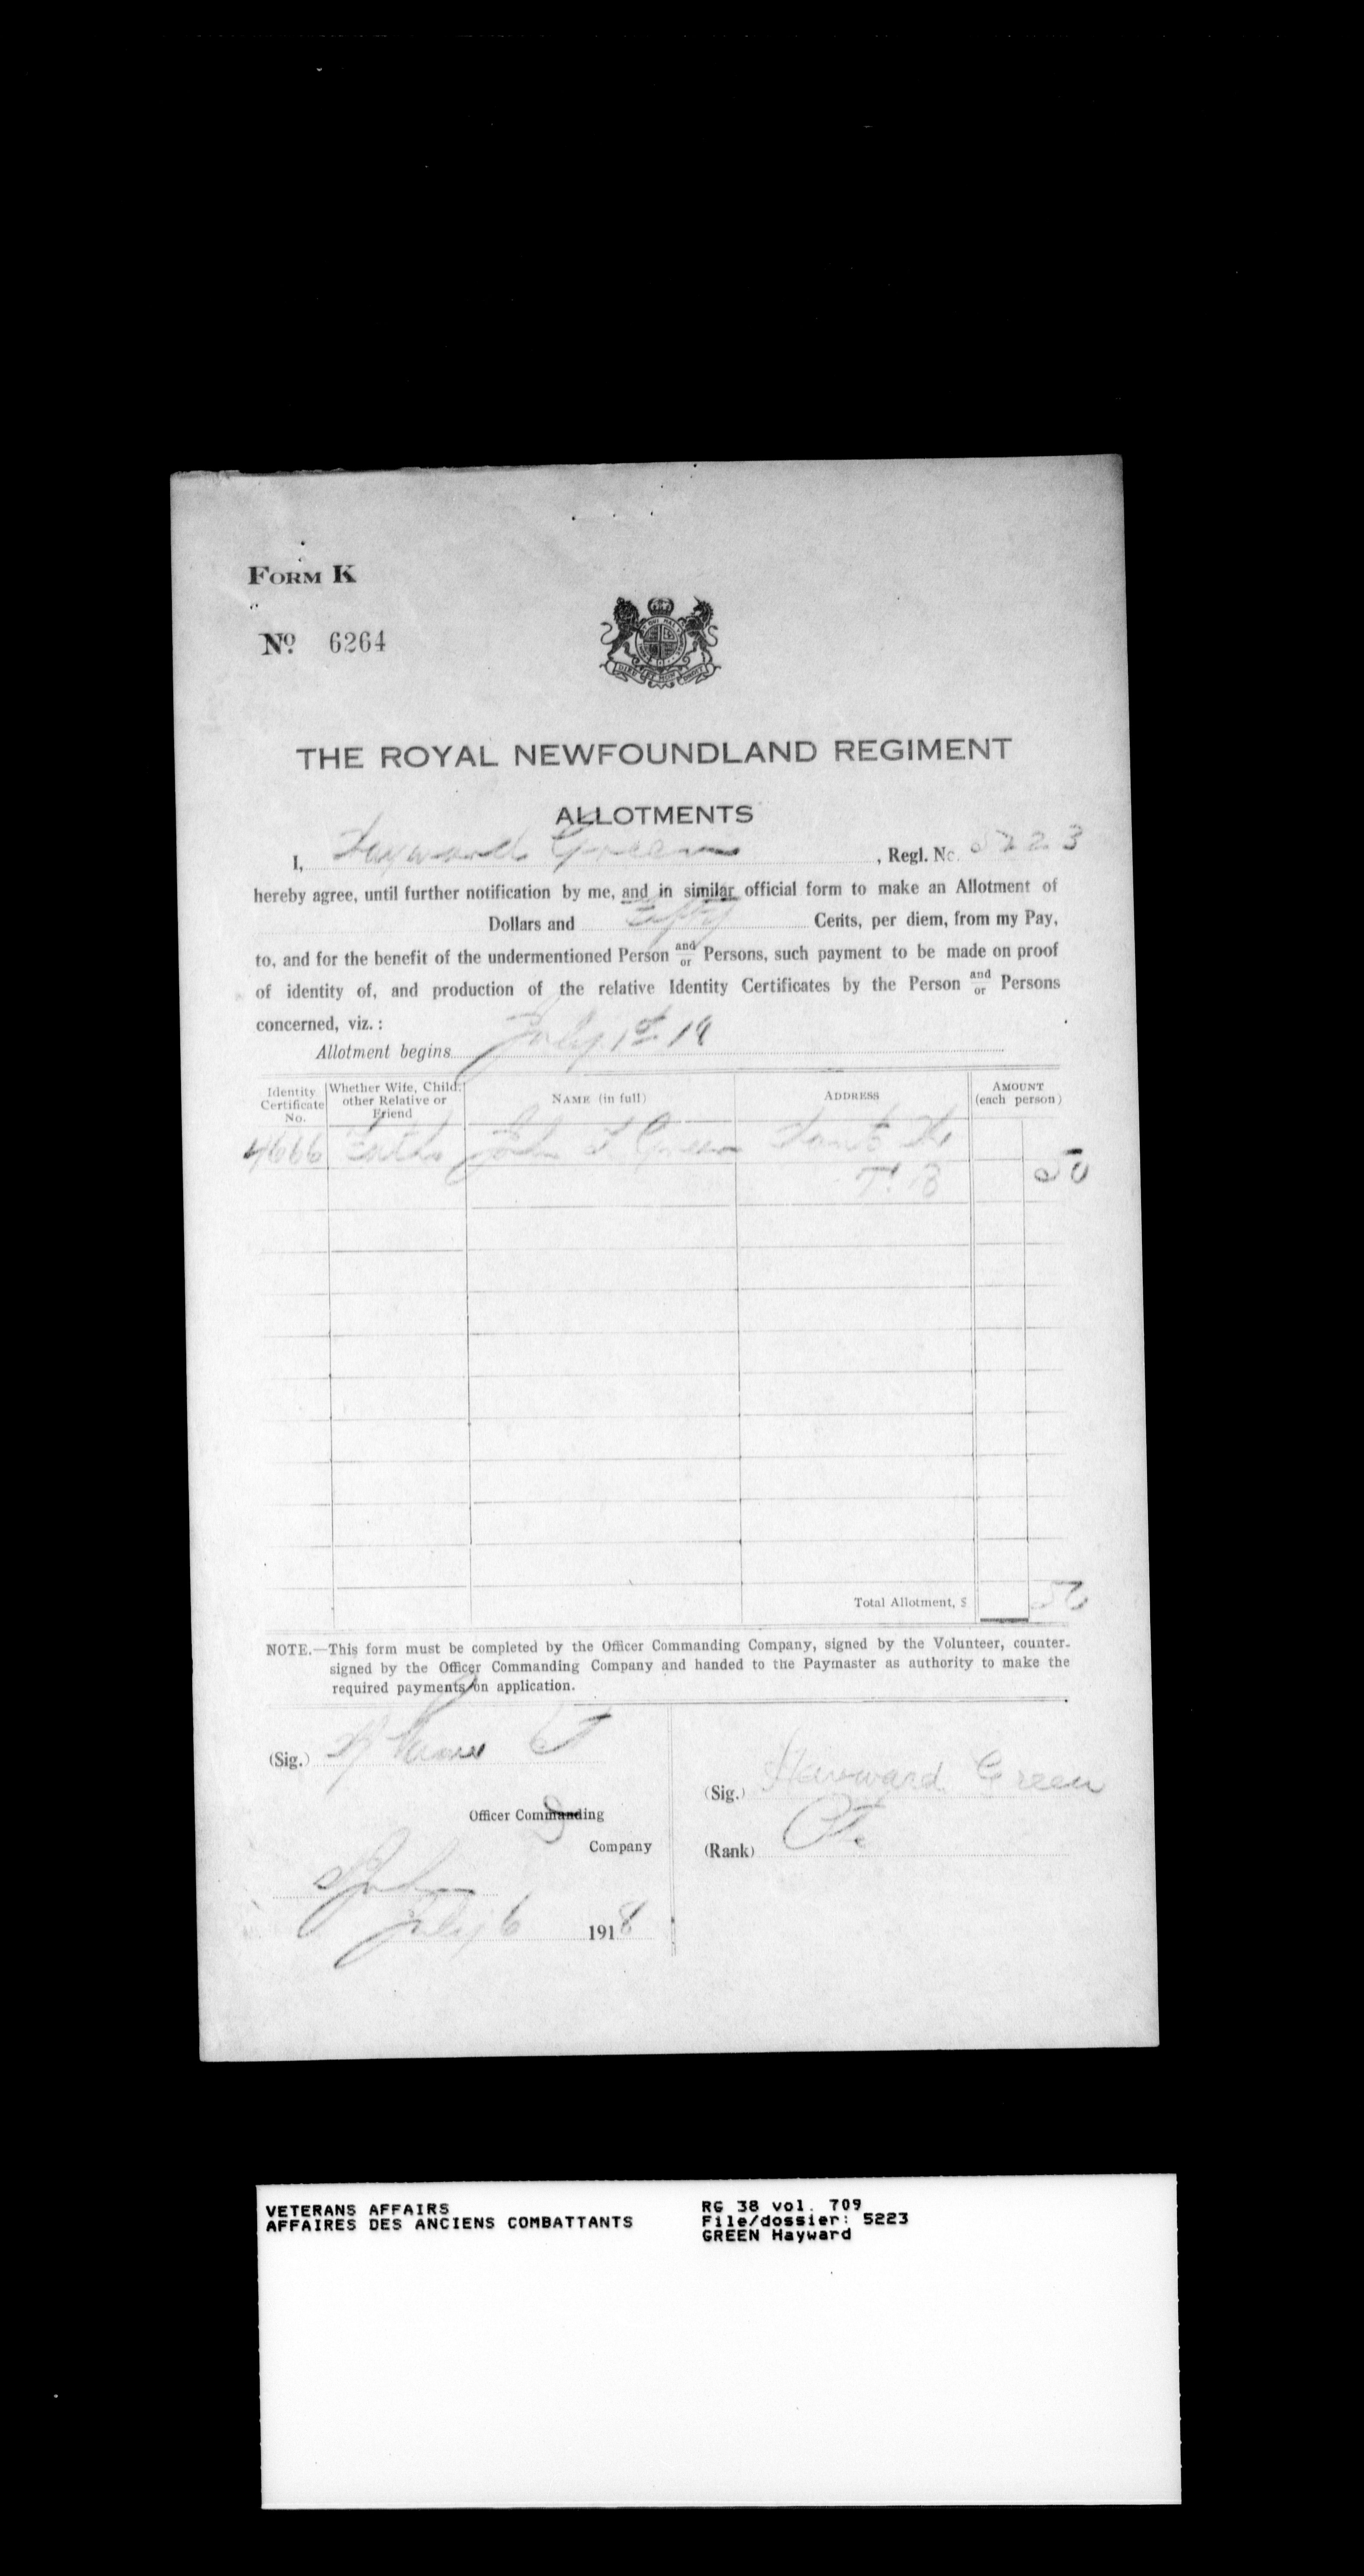 FORM K
No. 6264
THE ROYAL NEWFOUNDLAND REGIMENT
ALLOTMENTS
I, Hayward Green, Regl. No. 5223
hereby agree, until further notification by me, and in similar official form to make an Allotment of
Dollars and Fifty Cents, per diem, from my Pay,
to, and for the benefit of the undermentioned Person and/or Persons, such payment to be made on proof
of identity of, and production of the relative Identity Certificates by the Person and/or Persons
concerned, viz.:
Allotment begins July 1st 18
Identity Certificate No. | Whether Wife, Child, other Relative or Friend | NAME (in full) | ADDRESS | AMOUNT (each person)
4666 Father John Green
T. B 50
Total Allotment, $ 50
NOTE.—This form must be completed by the Officer Commanding Company, signed by the Volunteer, counter-
signed by the Officer Commanding Company and handed to the Paymaster as authority to make the
required payments on application.
(Sig.)
(Sig.) Hayward Green
Officer Commanding
Company
(Rank) Pt.
July 6 1918
VETERANS AFFAIRS
AFFAIRES DES ANCIENS COMBATTANTS
RG 38 vol. 709
File/dossier: 5223
GREEN Hayward